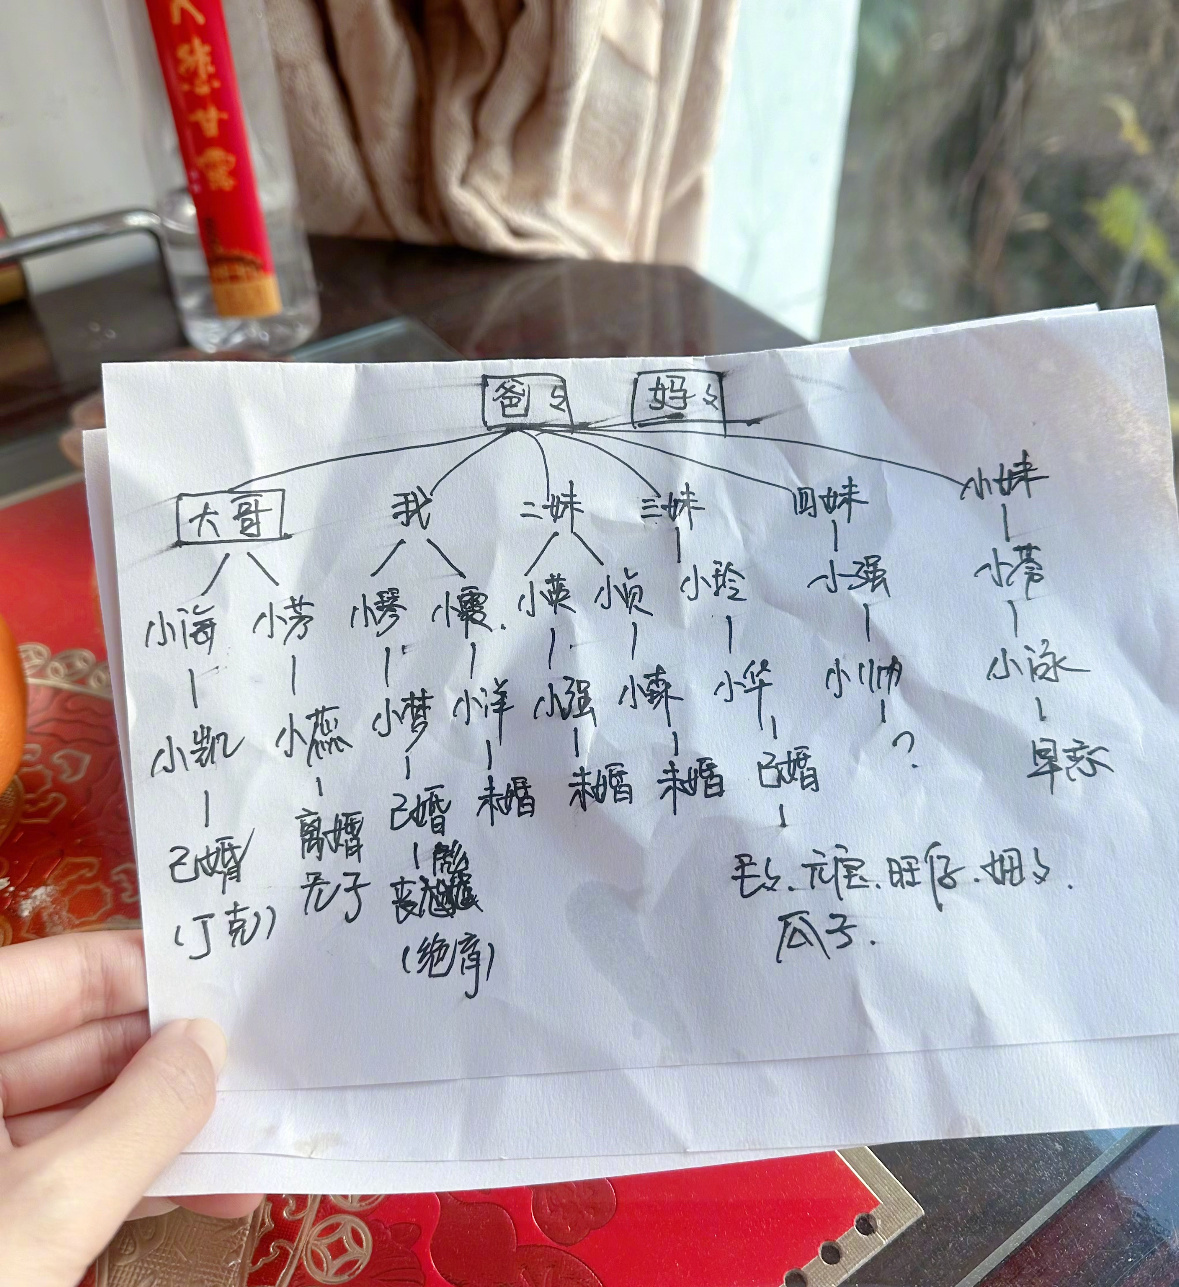 大紫甘露
爸〻 妈〻
大哥 我 二妹 三妹 四妹 小妹
小海 小芳 小琴 小霞. 小英 小贞 小玲 小强
小凯 小蕊 小梦 小洋 小强 小森 小华 小帅 小泳
已婚 离婚 已婚 未婚 未婚 未婚 已婚 ? 早恋
(丁克) 无子
(绝育)
毛〻.元宝.旺仔.妞〻.
瓜子.